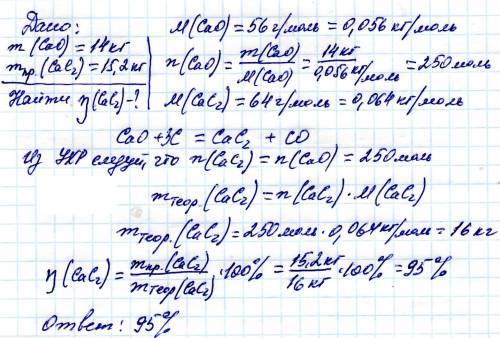 Дано:
m (CaO) = 14кг
mпр.(CaC₂) = 15,2кг
Найти η(CaC₂)-?
M(CaO) = 56 г/моль = 0,056 кг/моль
n(CaO) = m(CaO)/M(CaO) = 14кг/0,056 кг/моль = 250моль
M(CaC₂) = 64 г/моль = 0,064 кг/моль
CaO + 3C = CaC₂ + CO
Из УХР следует, что n(CaC₂) = n(CaO) = 250моль
mтеор.(CaC₂) = n(CaC₂) · M(CaC₂)
mтеор.(CaC₂) = 250моль · 0,064кг/моль = 16 кг
η(CaC₂) = mпр.(CaC₂)/mтеор(CaC₂) · 100% = 15,2кг/16кг · 100% = 95%
Ответ: 95%